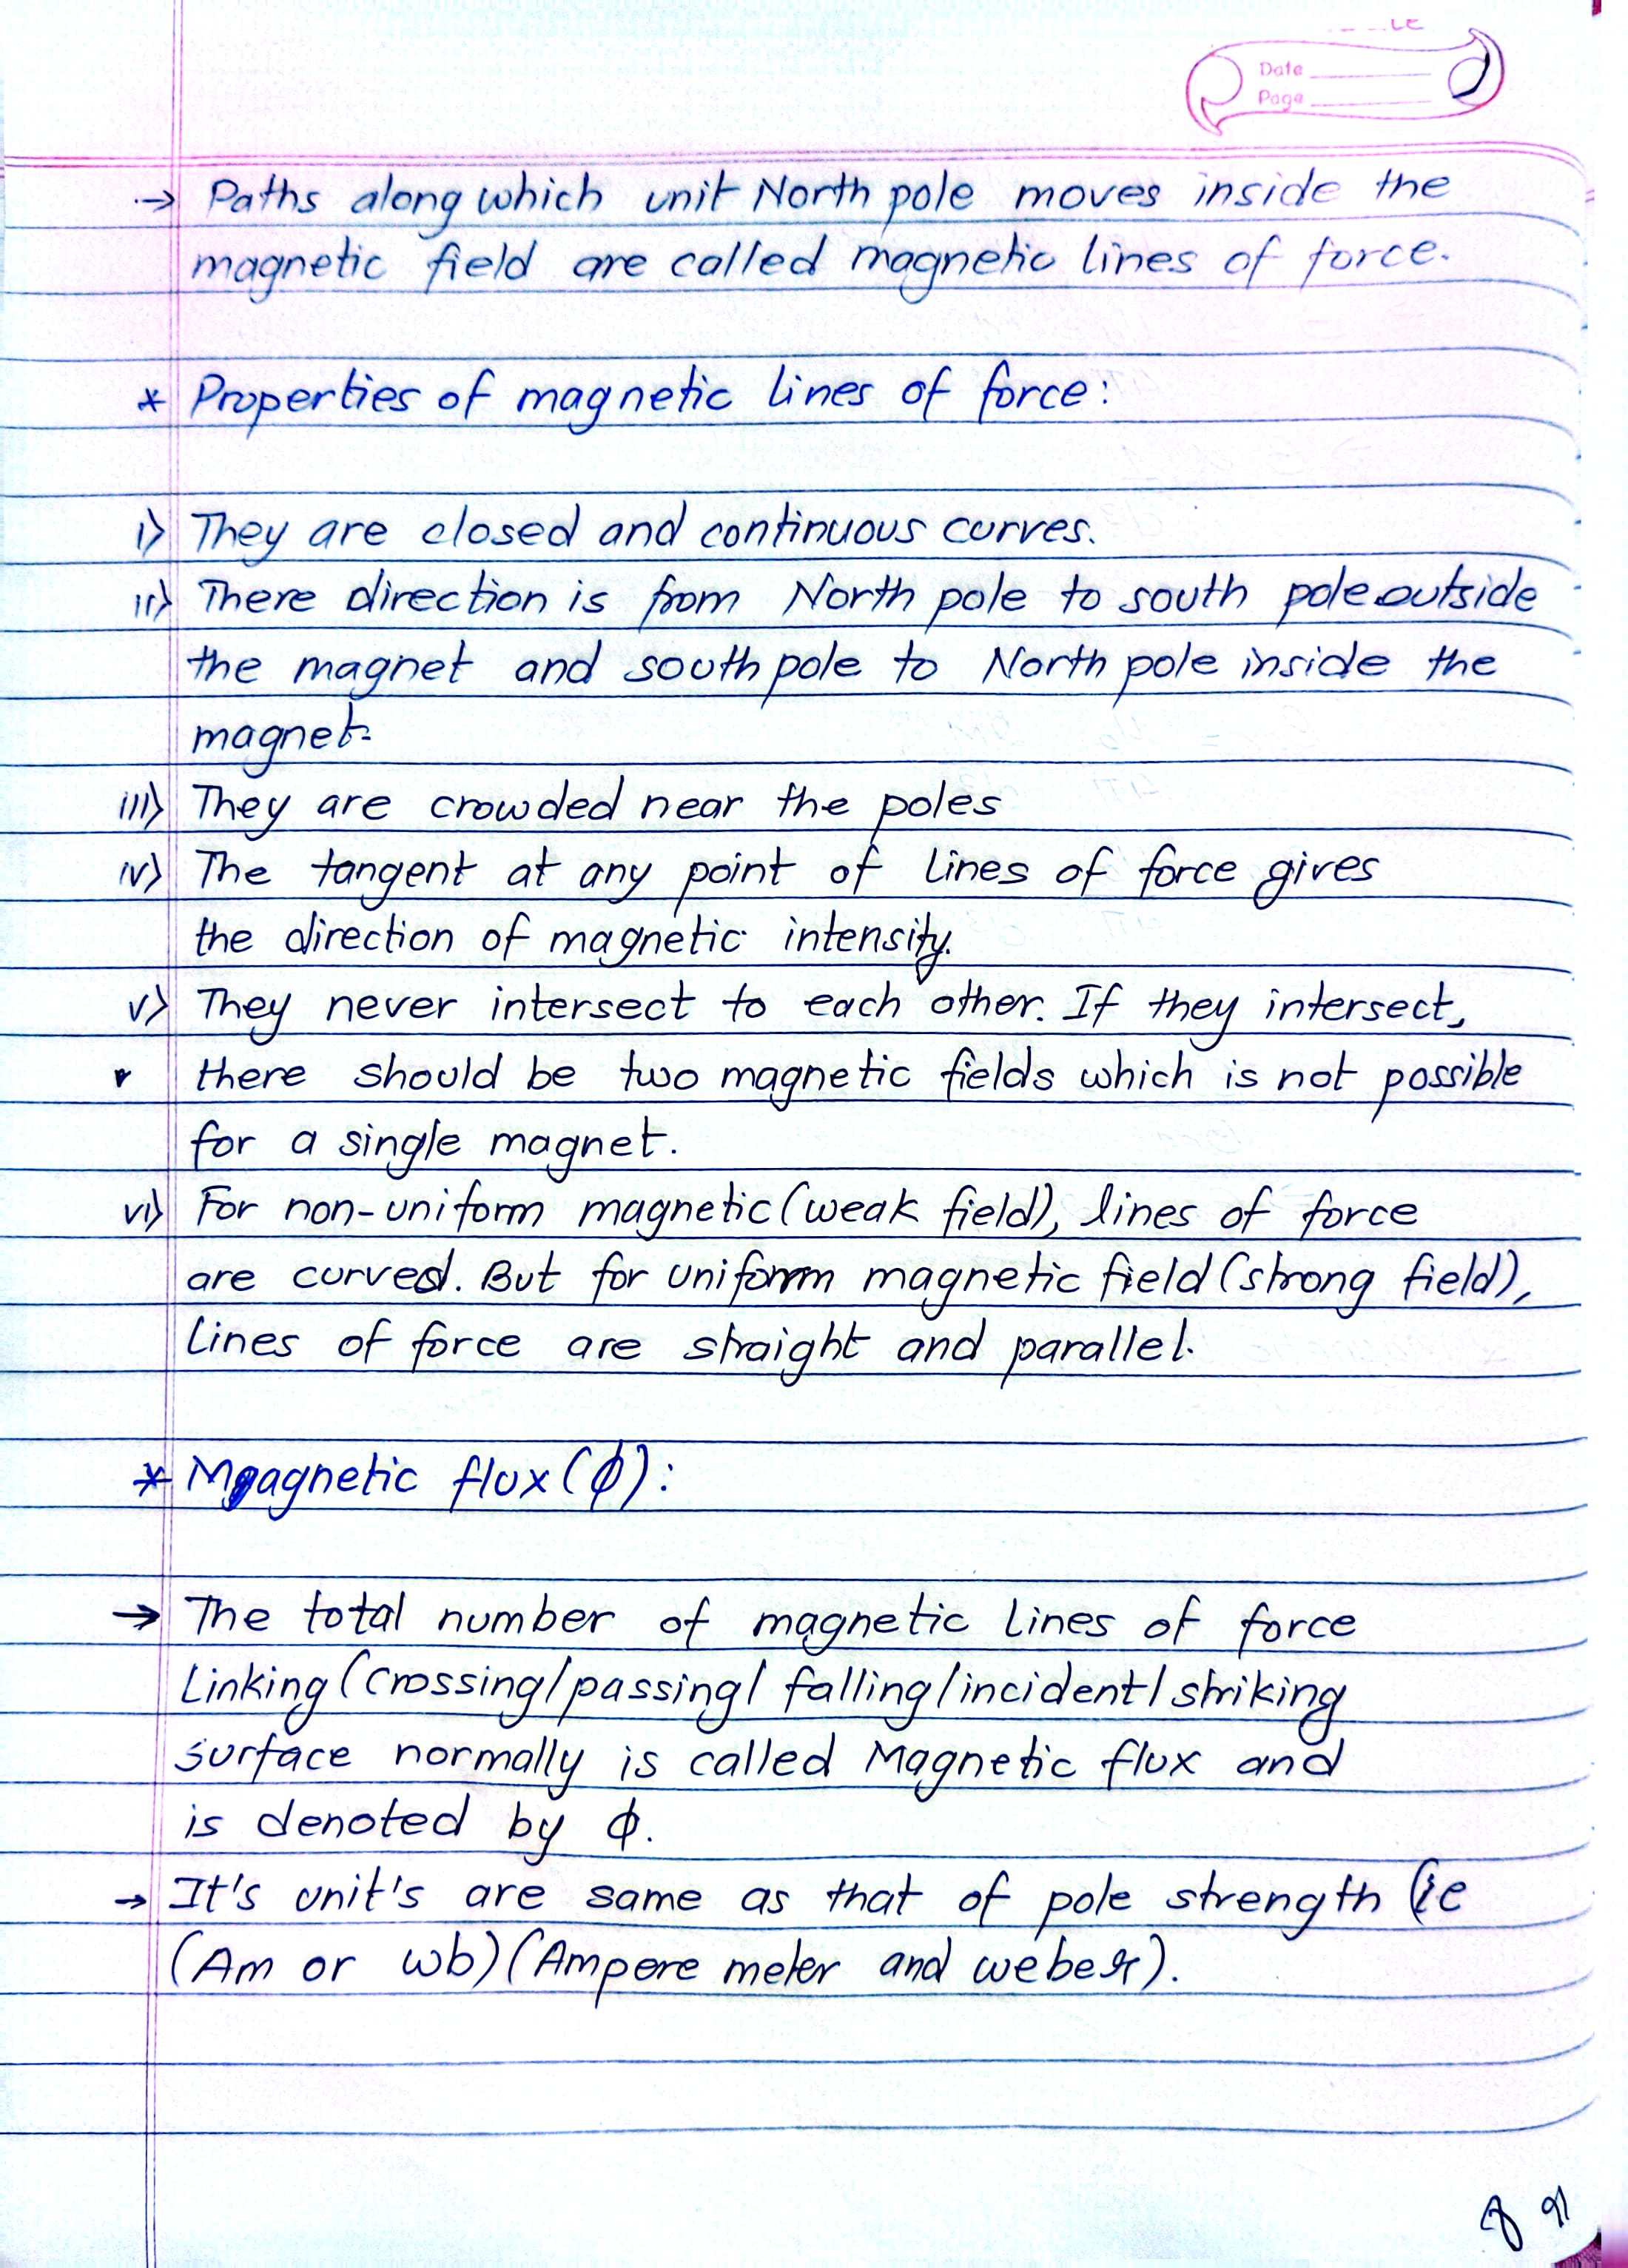 Date
Page
→ Paths along which unit North pole moves inside the
magnetic field are called magnetic lines of force.
* Properties of magnetic lines of force:
i) They are closed and continuous curves.
ii) There direction is from North pole to south pole outside
the magnet and south pole to North pole inside the
magnet.
iii) They are crowded near the poles
iv) The tangent at any point of lines of force gives
the direction of magnetic intensity.
v) They never intersect to each other. If they intersect,
there should be two magnetic fields which is not possible
for a single magnet.
vi) For non-uniform magnetic (weak field), lines of force
are curved. But for uniform magnetic field (strong field),
lines of force are straight and parallel.
* Magnetic flux (ϕ):
→ The total number of magnetic lines of force
Linking (crossing/passing/ falling/incident/striking
surface normally is called Magnetic flux and
is denoted by ϕ.
→ It's unit's are same as that of pole strength (ie
(Am or wb) (Ampere meter and weber).